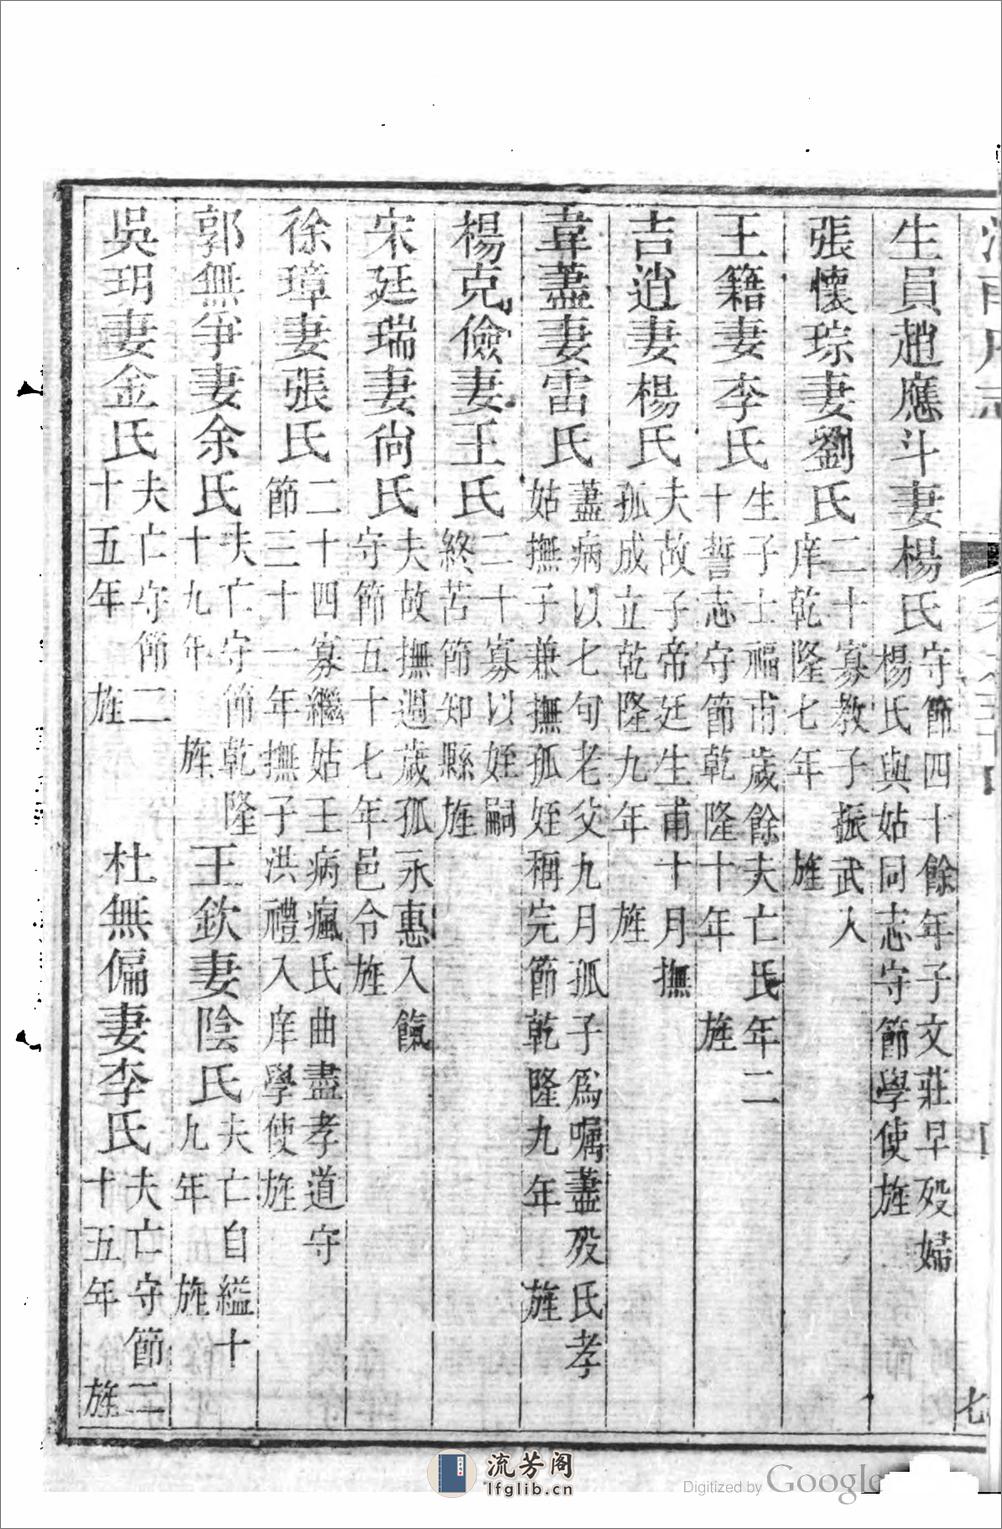 生員趙應斗妻楊氏守節四十餘年子文莊早殁婦楊氏與姑同志守節學使旌
張懷琮妻劉氏二十寡教子振武入庠乾隆七年旌
王籍妻李氏生子士福甫歲餘夫亡氏年二十誓志守節乾隆十年旌
吉逍妻楊氏夫故子帝廷生甫十月撫孤成立乾隆九年旌
韋藎妻雷氏藎病以七旬老父九月孤子爲嘱藎殁氏孝姑撫子兼撫孤姪稱完節乾隆九年旌
楊克儉妻王氏二十寡以姪嗣終苦節知縣旌
宋廷瑞妻尙氏夫故撫週歲孤永惠入餼守節五十七年邑令旌
徐璋妻張氏二十四寡繼姑王病瘋氏曲盡孝道守節三十一年撫子洪禮入庠學使旌
郭無爭妻余氏夫亡守節乾隆十九年旌 王欽妻陰氏夫亡自縊十九年旌
吳玥妻金氏夫亡守節二十五年旌 杜無偏妻李氏夫亡守節二十五年旌
七
流芳阁
lfglib.cn
Digitized by Google